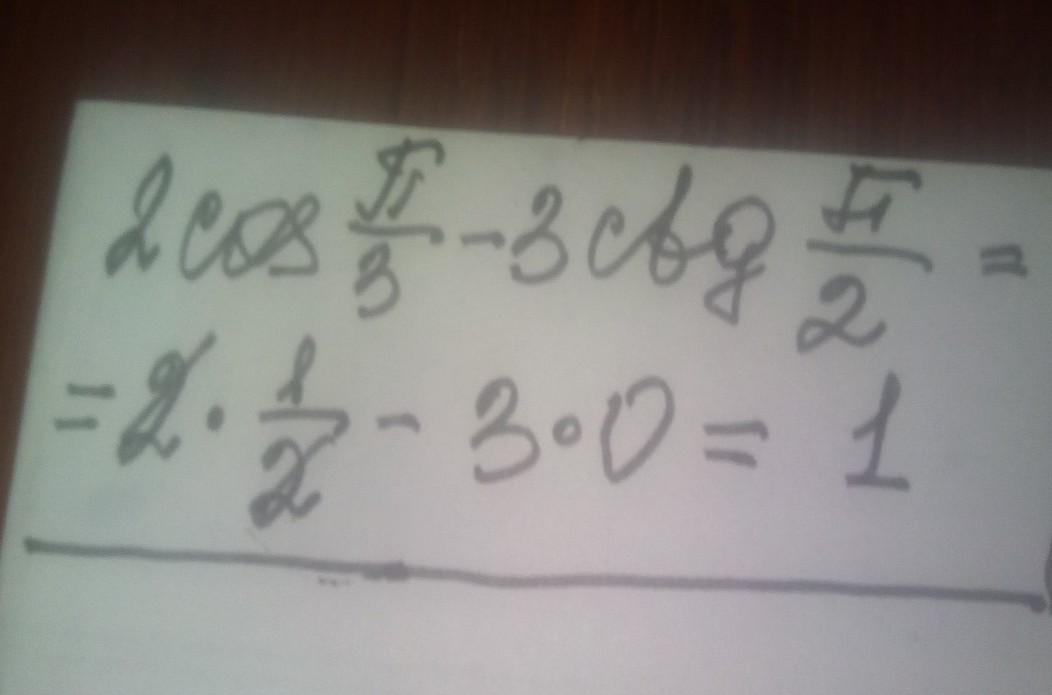 2cos π/3 - 3ctg π/2 =
= 2 · 1/2 - 3 · 0 = 1